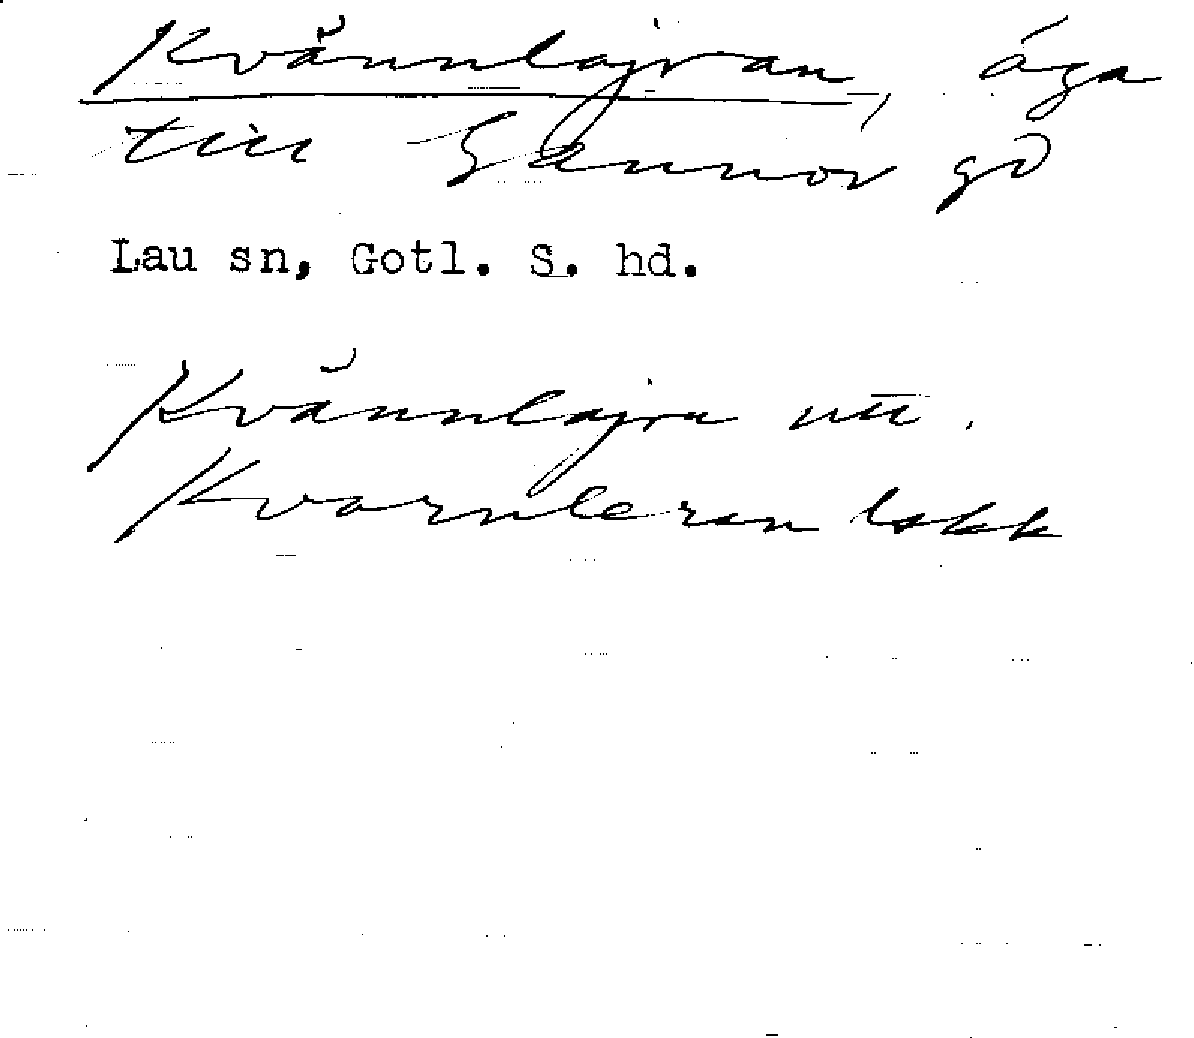 Kvännlajran, äga
till Gannor gd
Lau sn, Gotl. S. hd.
Kvännlajra utt.
Kvarnleran lokk